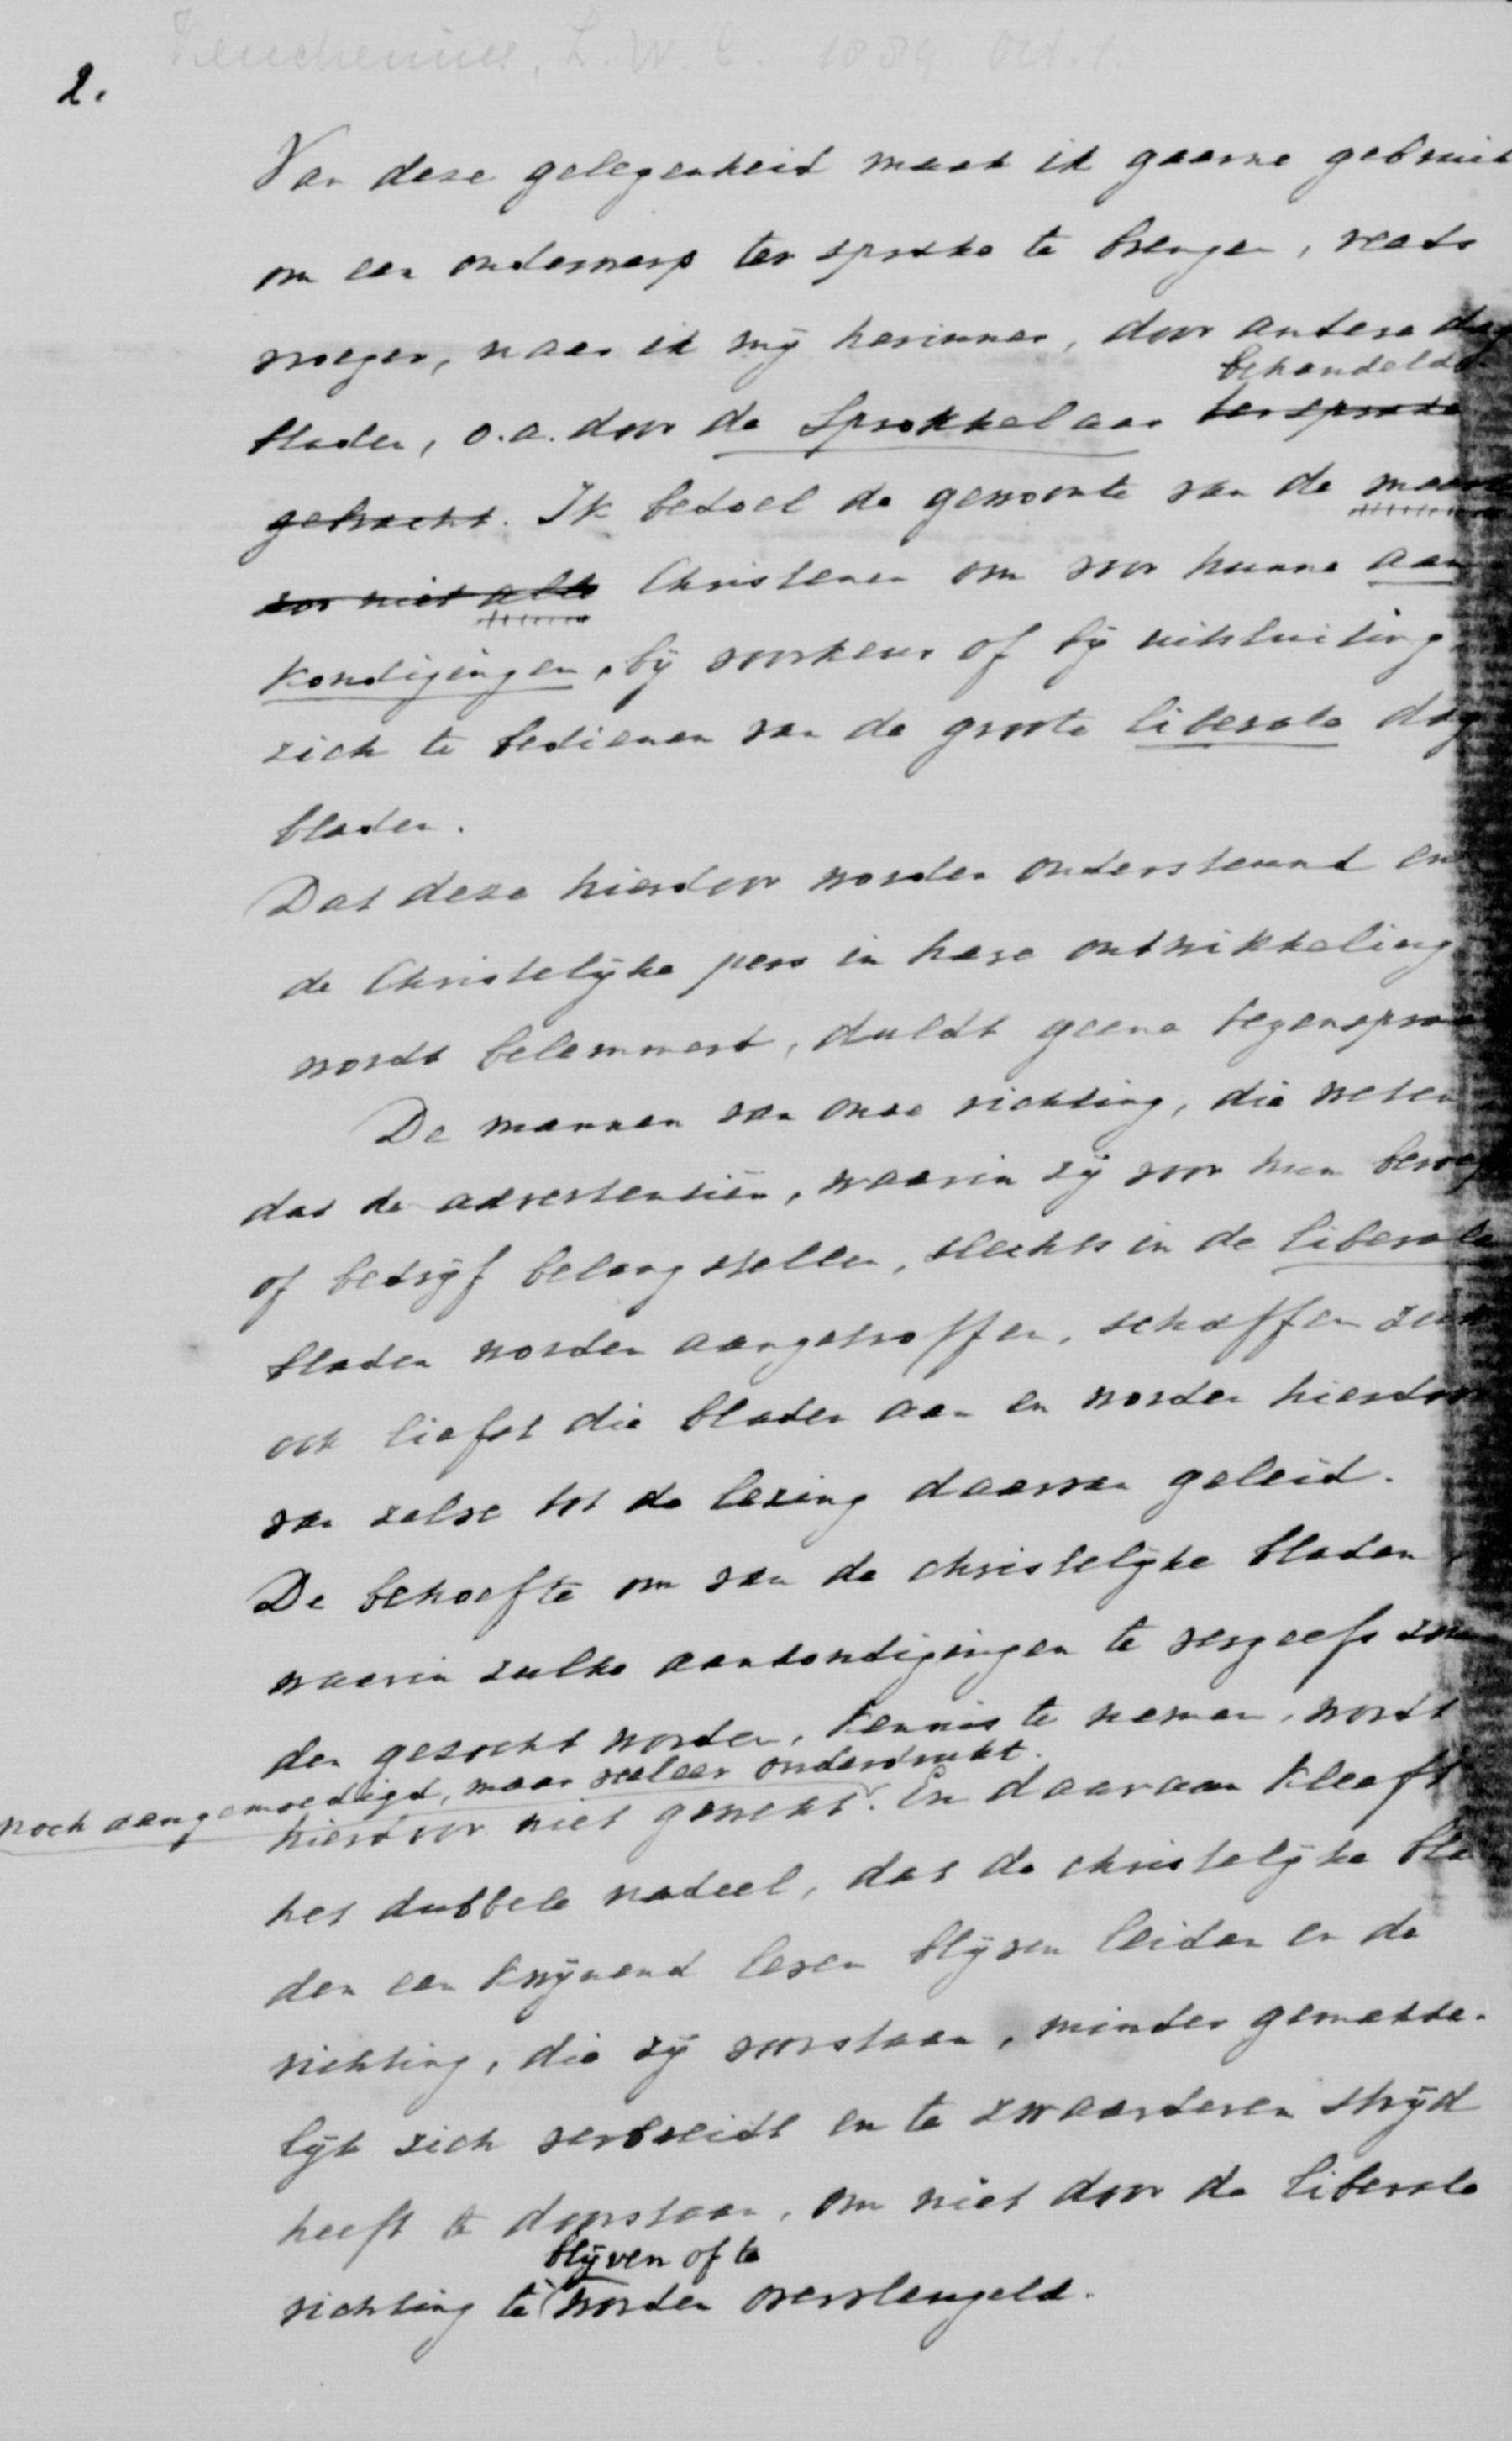 Keuchenius, L. W. C. 1889 Oct. 1.
2.
Van deze gelegenheid maak ik gaarne gebruik
om een onderwerp ter sprake te brengen, reeds
vroeger, naar ik mij herinner, door andere dag
behandeld.
bladen, o.a. door de Sprokkelaar ter sprake
gebracht. Ik bedoel de gewoonte van de meeste
zoo niet alle Christenen om voor hunne aan
kondigingen, bij voorkeur of bij uitsluiting
zich te bedienen van de groote liberale dag
bladen.
Dat deze hierdoor worden ondersteund en
de Christelijke pers in hare ontwikkeling
wordt belemmerd, duldt geene tegenspraak
De mannen van onze richting, die weten
dat de advertentiën, waarin zij voor hun beroep
of bedrijf belang stellen, slechts in de liberale
bladen worden aangetroffen, schaffen zich
ook liefst die bladen aan en worden hierdoor
van zelve tot de lezing daarvan geleid.
De behoefte om van de christelijke bladen,
waarin zulke aankondigingen te vergeefs zou
den gezocht worden, kennis te nemen, wordt
noch aangemoedigd, maar veeleer onderdrukt.
hierdoor niet gewekt. En daaraan kleeft
het dubbele nadeel, dat de christelijke bla
den een kwijnend leven blijven leiden en de
richting, die zij voorstaan, minder gemakke-
lijk zich verbreidt en te zwaarderen strijd
heeft te doorstaan, om niet door de liberale
blijven of te
richting te worden overvleugeld.